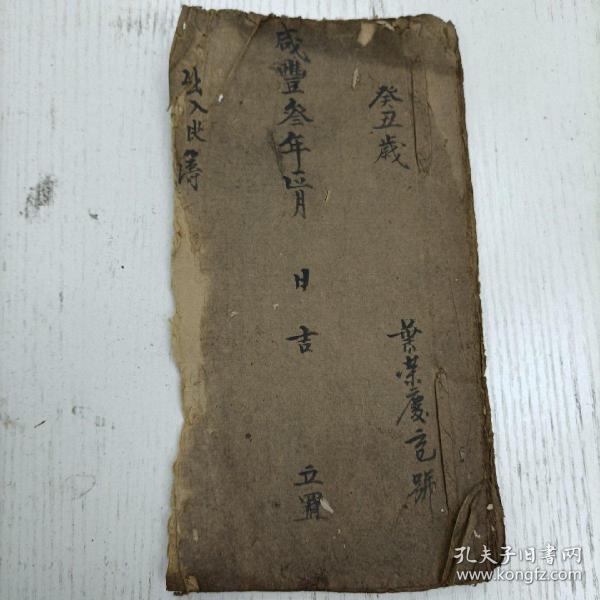 癸丑歲
葉榮慶 號
咸豐叁年正月 日吉 立置
入 簿
孔夫子旧书网
www.kongfz.com